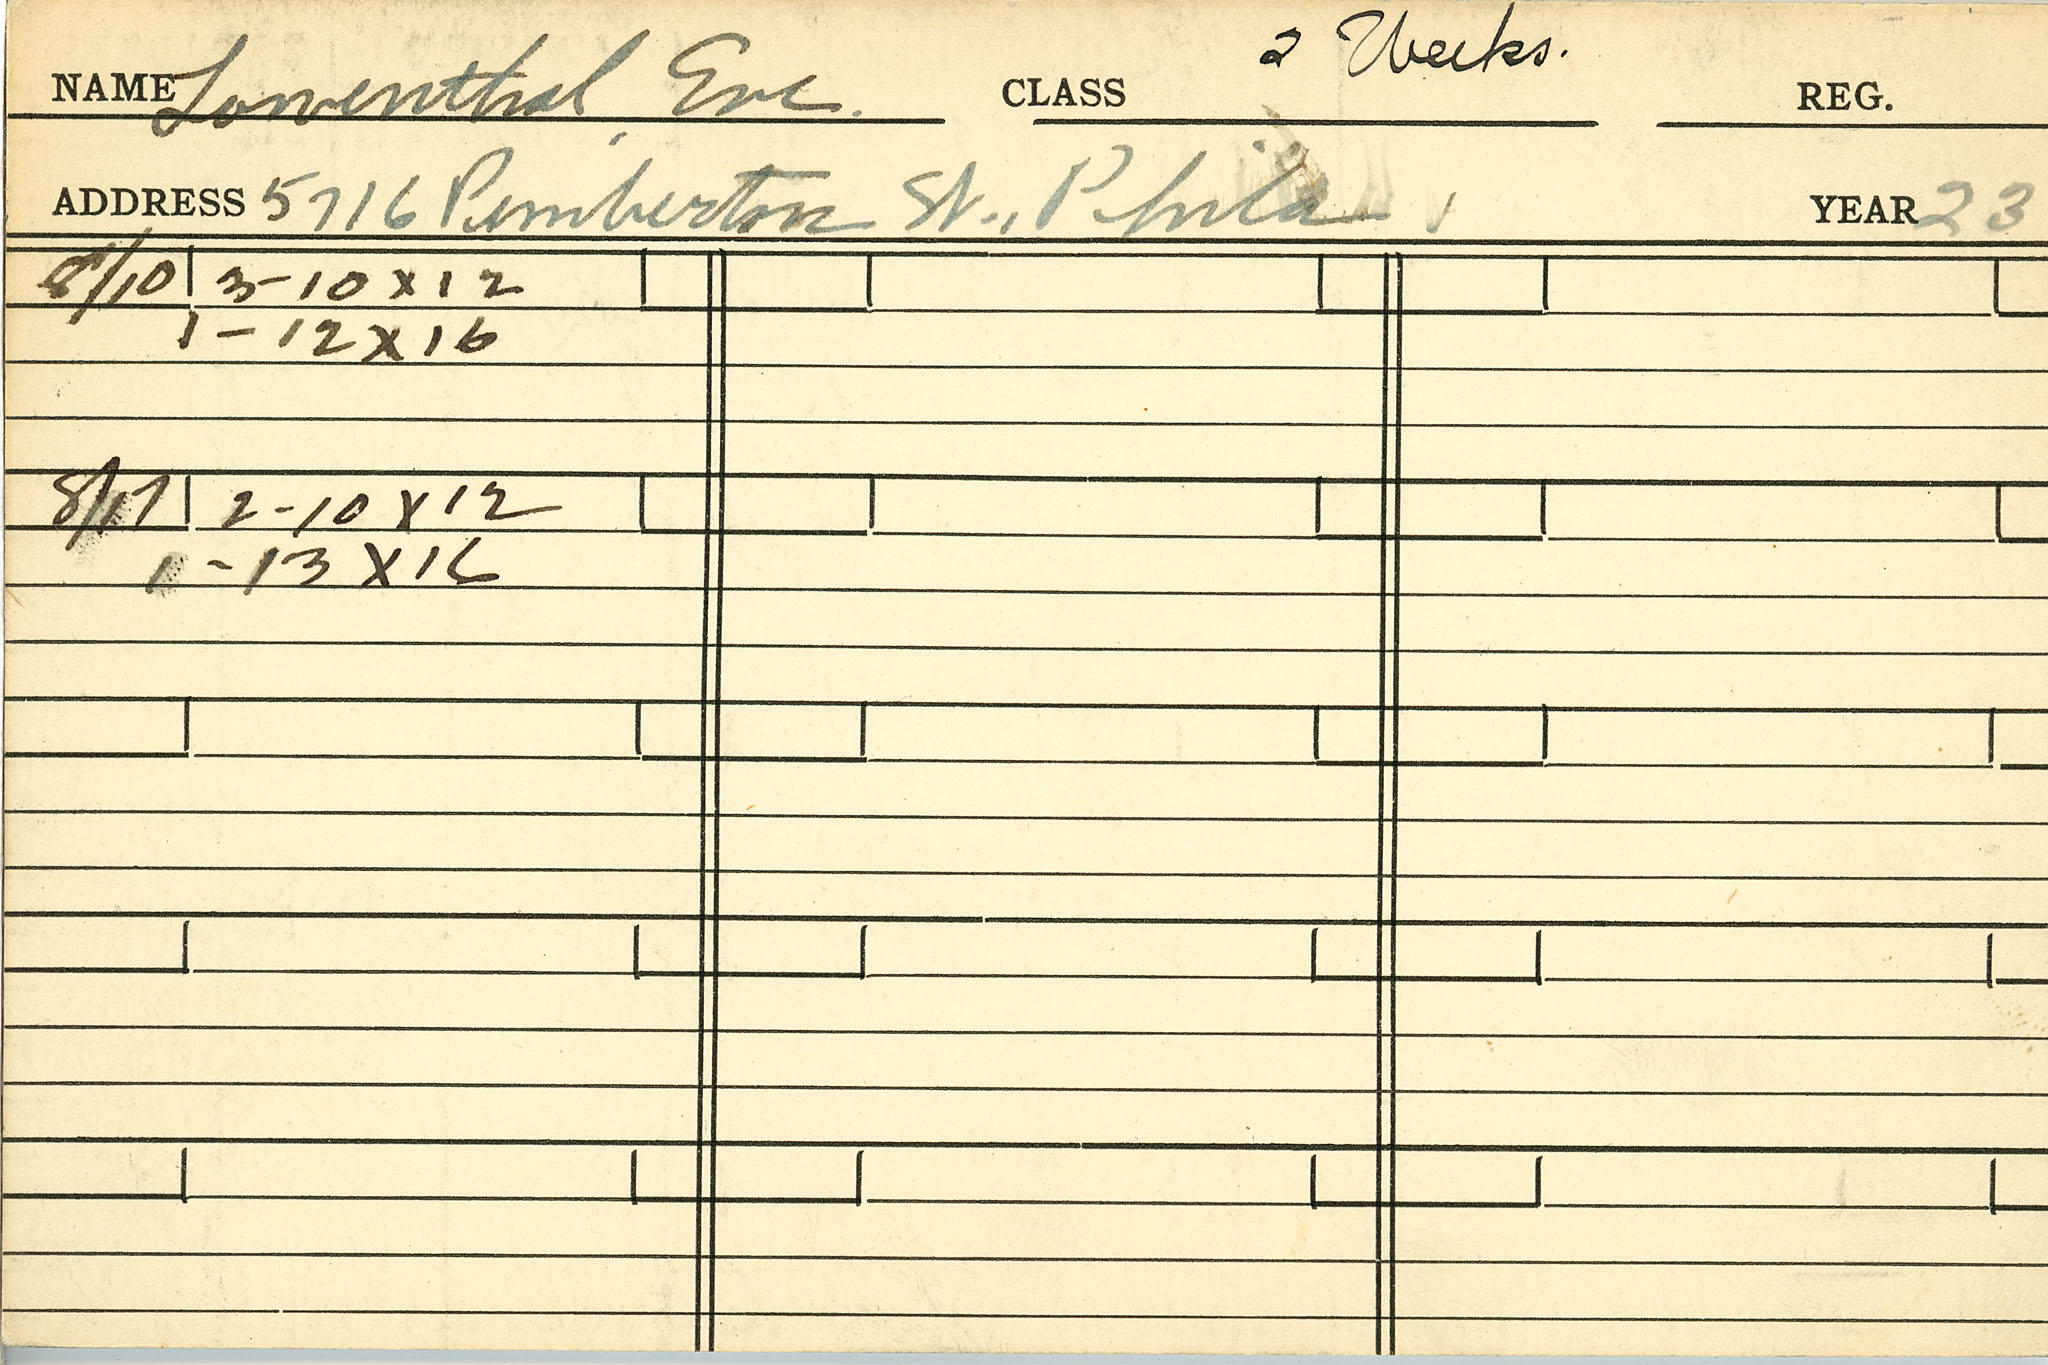 NAME Lowenthal Eve. CLASS 2 Weeks. REG.
ADDRESS 5716 Pemberton St., Phila YEAR 23
8/10 3-10 x 12
1 - 12 x 16
8/17 2-10 x 12
1 - 13 x 16